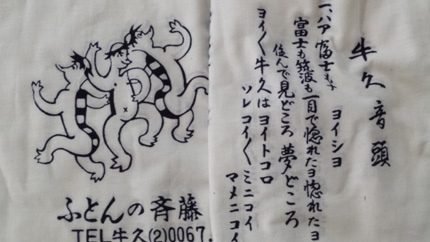 牛久音頭
ヨイショ
一、ハア 富士も
富士も筑波も一目で惚れたヨ惚れたヨ
住んで見どころ 夢どころ
ヨイ〱牛久はヨイトコロ
ソレコイ〱ミニコイ
マメニコイ
ふとんの斉藤
TEL牛久(2)0067.